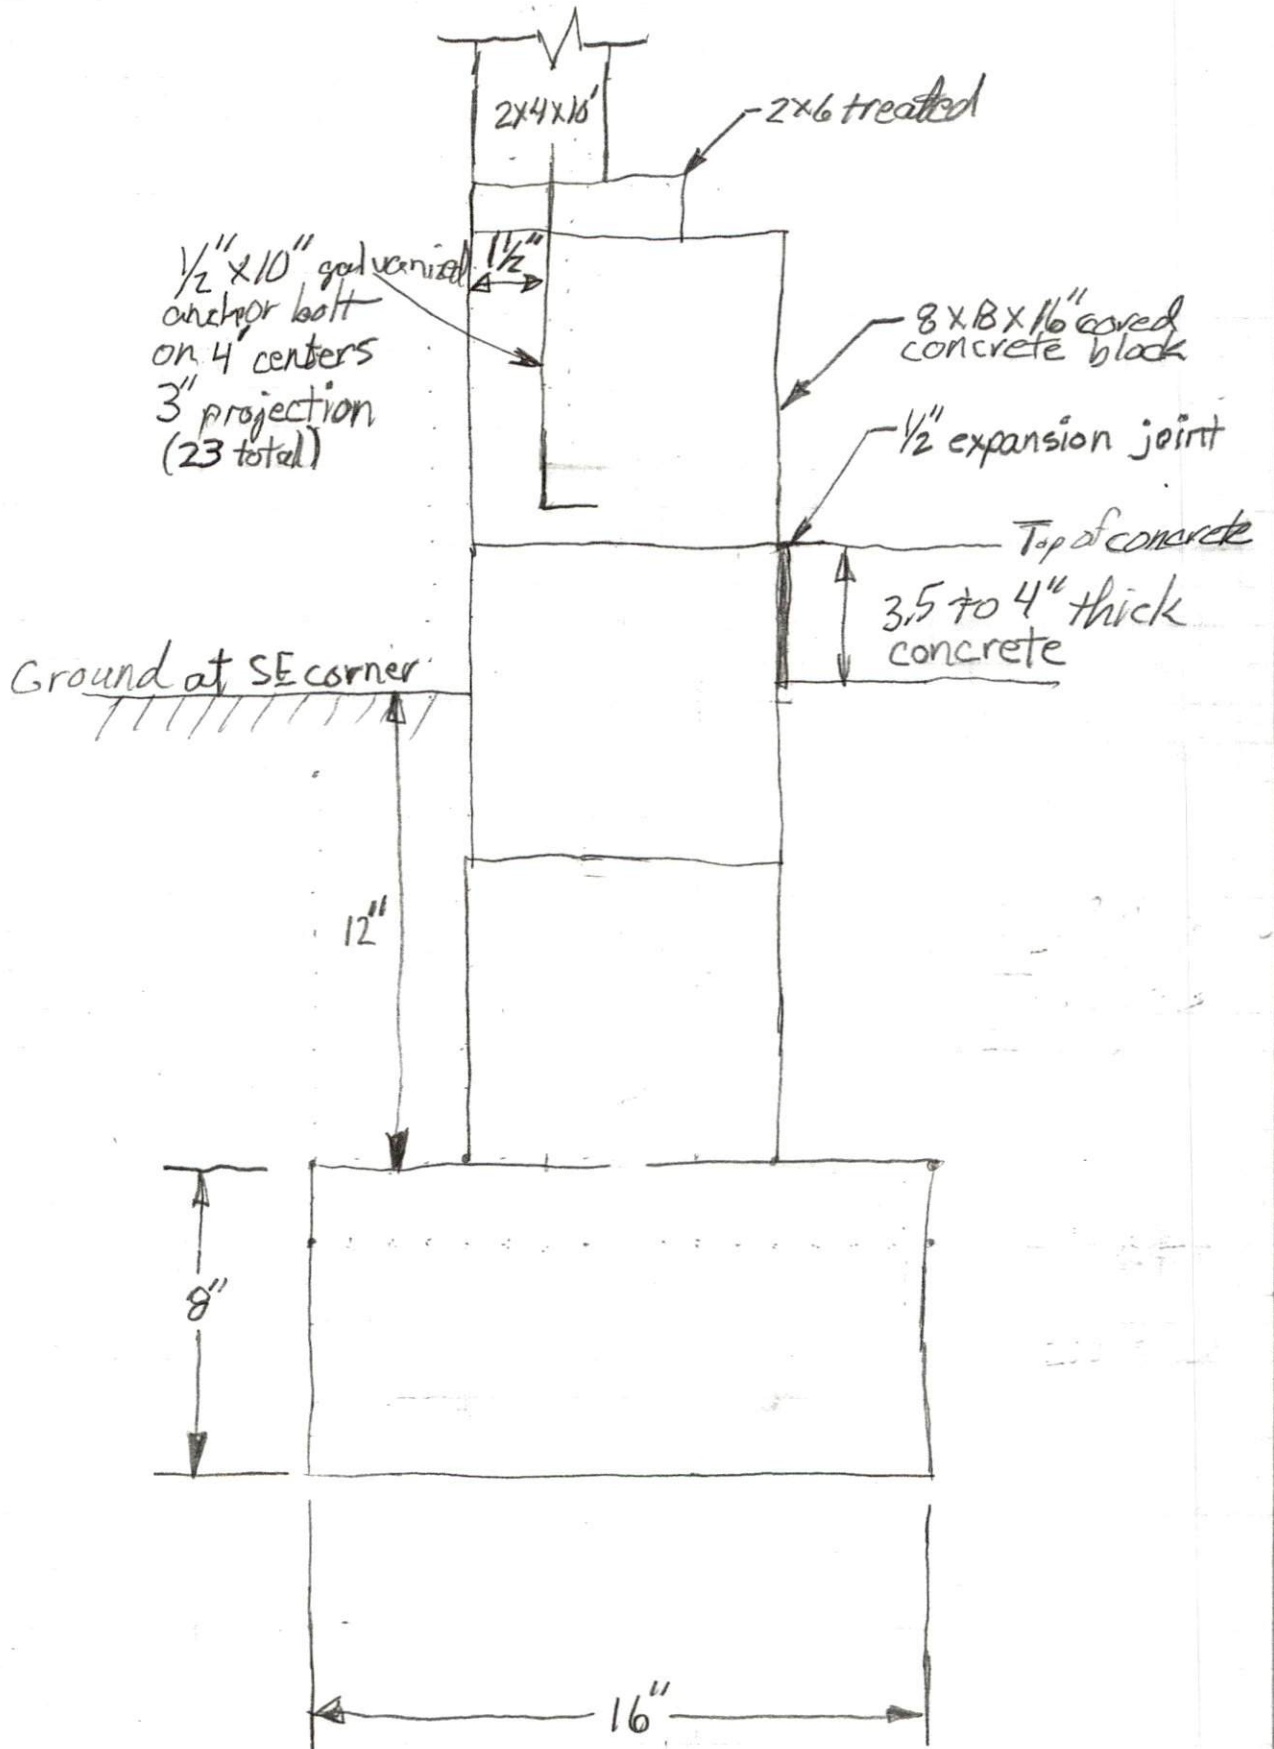 2x4x10'
2x6 treated
1½"
½"x10" galvanized
anchor bolt
on 4' centers
3" projection
(23 total)
8x8x16" cored
concrete block
½" expansion joint
Top of concrete
3.5 to 4" thick
concrete
Ground at SE corner
12"
8"
16"